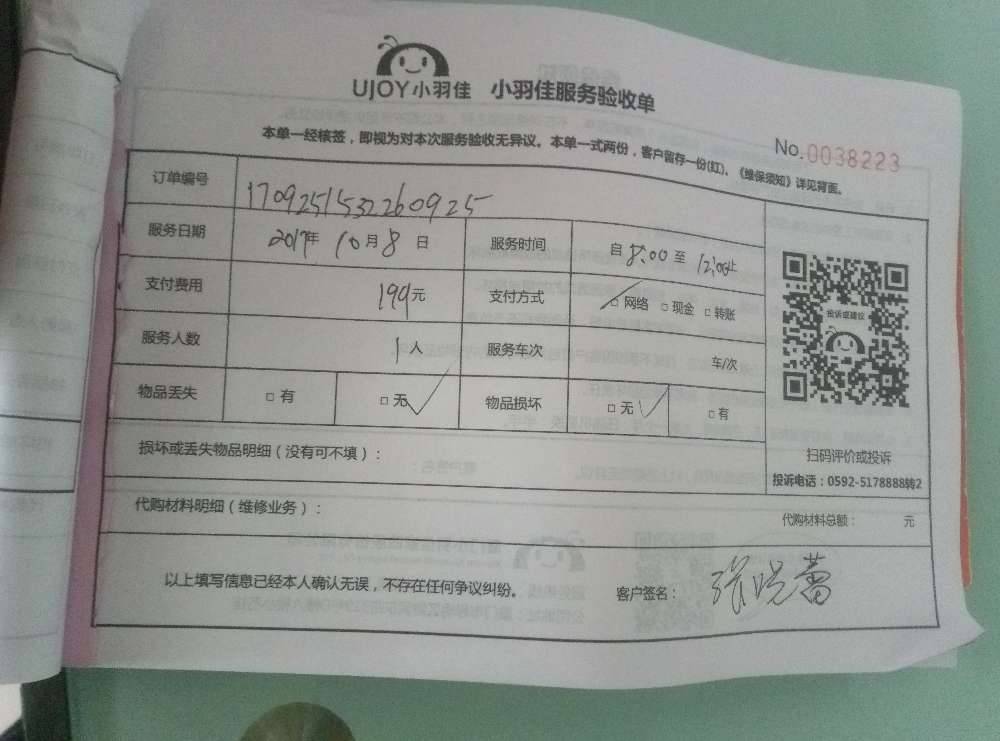 UJOY小羽佳 小羽佳服务验收单
本单一经核签，即视为对本次服务验收无异议。本单一式两份，客户留存一份(红)、《维保须知》详见背面。
No.0038223
订单编号 1709251532260925
服务日期 2017年 10月 8日 服务时间 自 8:00 至 12:00止
支付费用 199元 支付方式 □网络 □现金 □转账
服务人数 1人 服务车次 车/次
物品丢失 □有 □无 物品损坏 □无 □有
投诉或建议
扫码评价或投诉
投诉电话：0592-5178888转2
损坏或丢失物品明细（没有可不填）：
代购材料明细（维修业务）： 代购材料总额： 元
以上填写信息已经本人确认无误，不存在任何争议纠纷。 客户签名： 张晓蕾